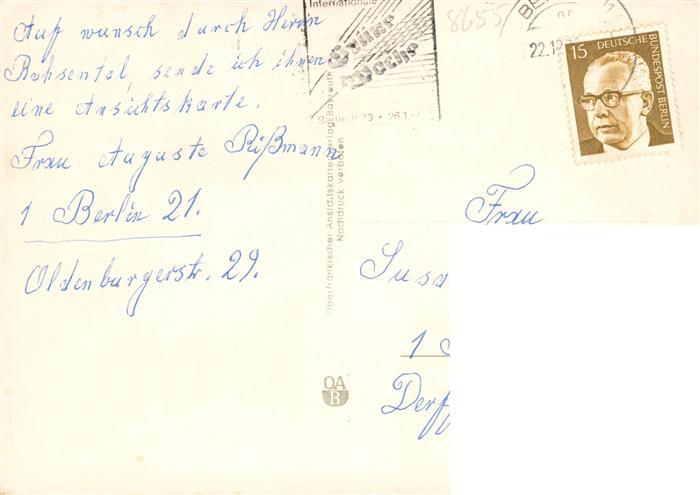 Auf wunsch durch Herrn
Rohsental, sende ich ihnen
eine Ansichtskarte.
Frau Auguste Rißmann
1 Berlin 21.
Oldenburgerstr. 29.
Internationale
Grüne
Woche
8655
22.12
15 DEUTSCHE BUNDESPOST BERLIN
Oberfränkischer Ansichtskartenverlag Bayreuth
Nachdruck verboten
OA
B
Frau
1